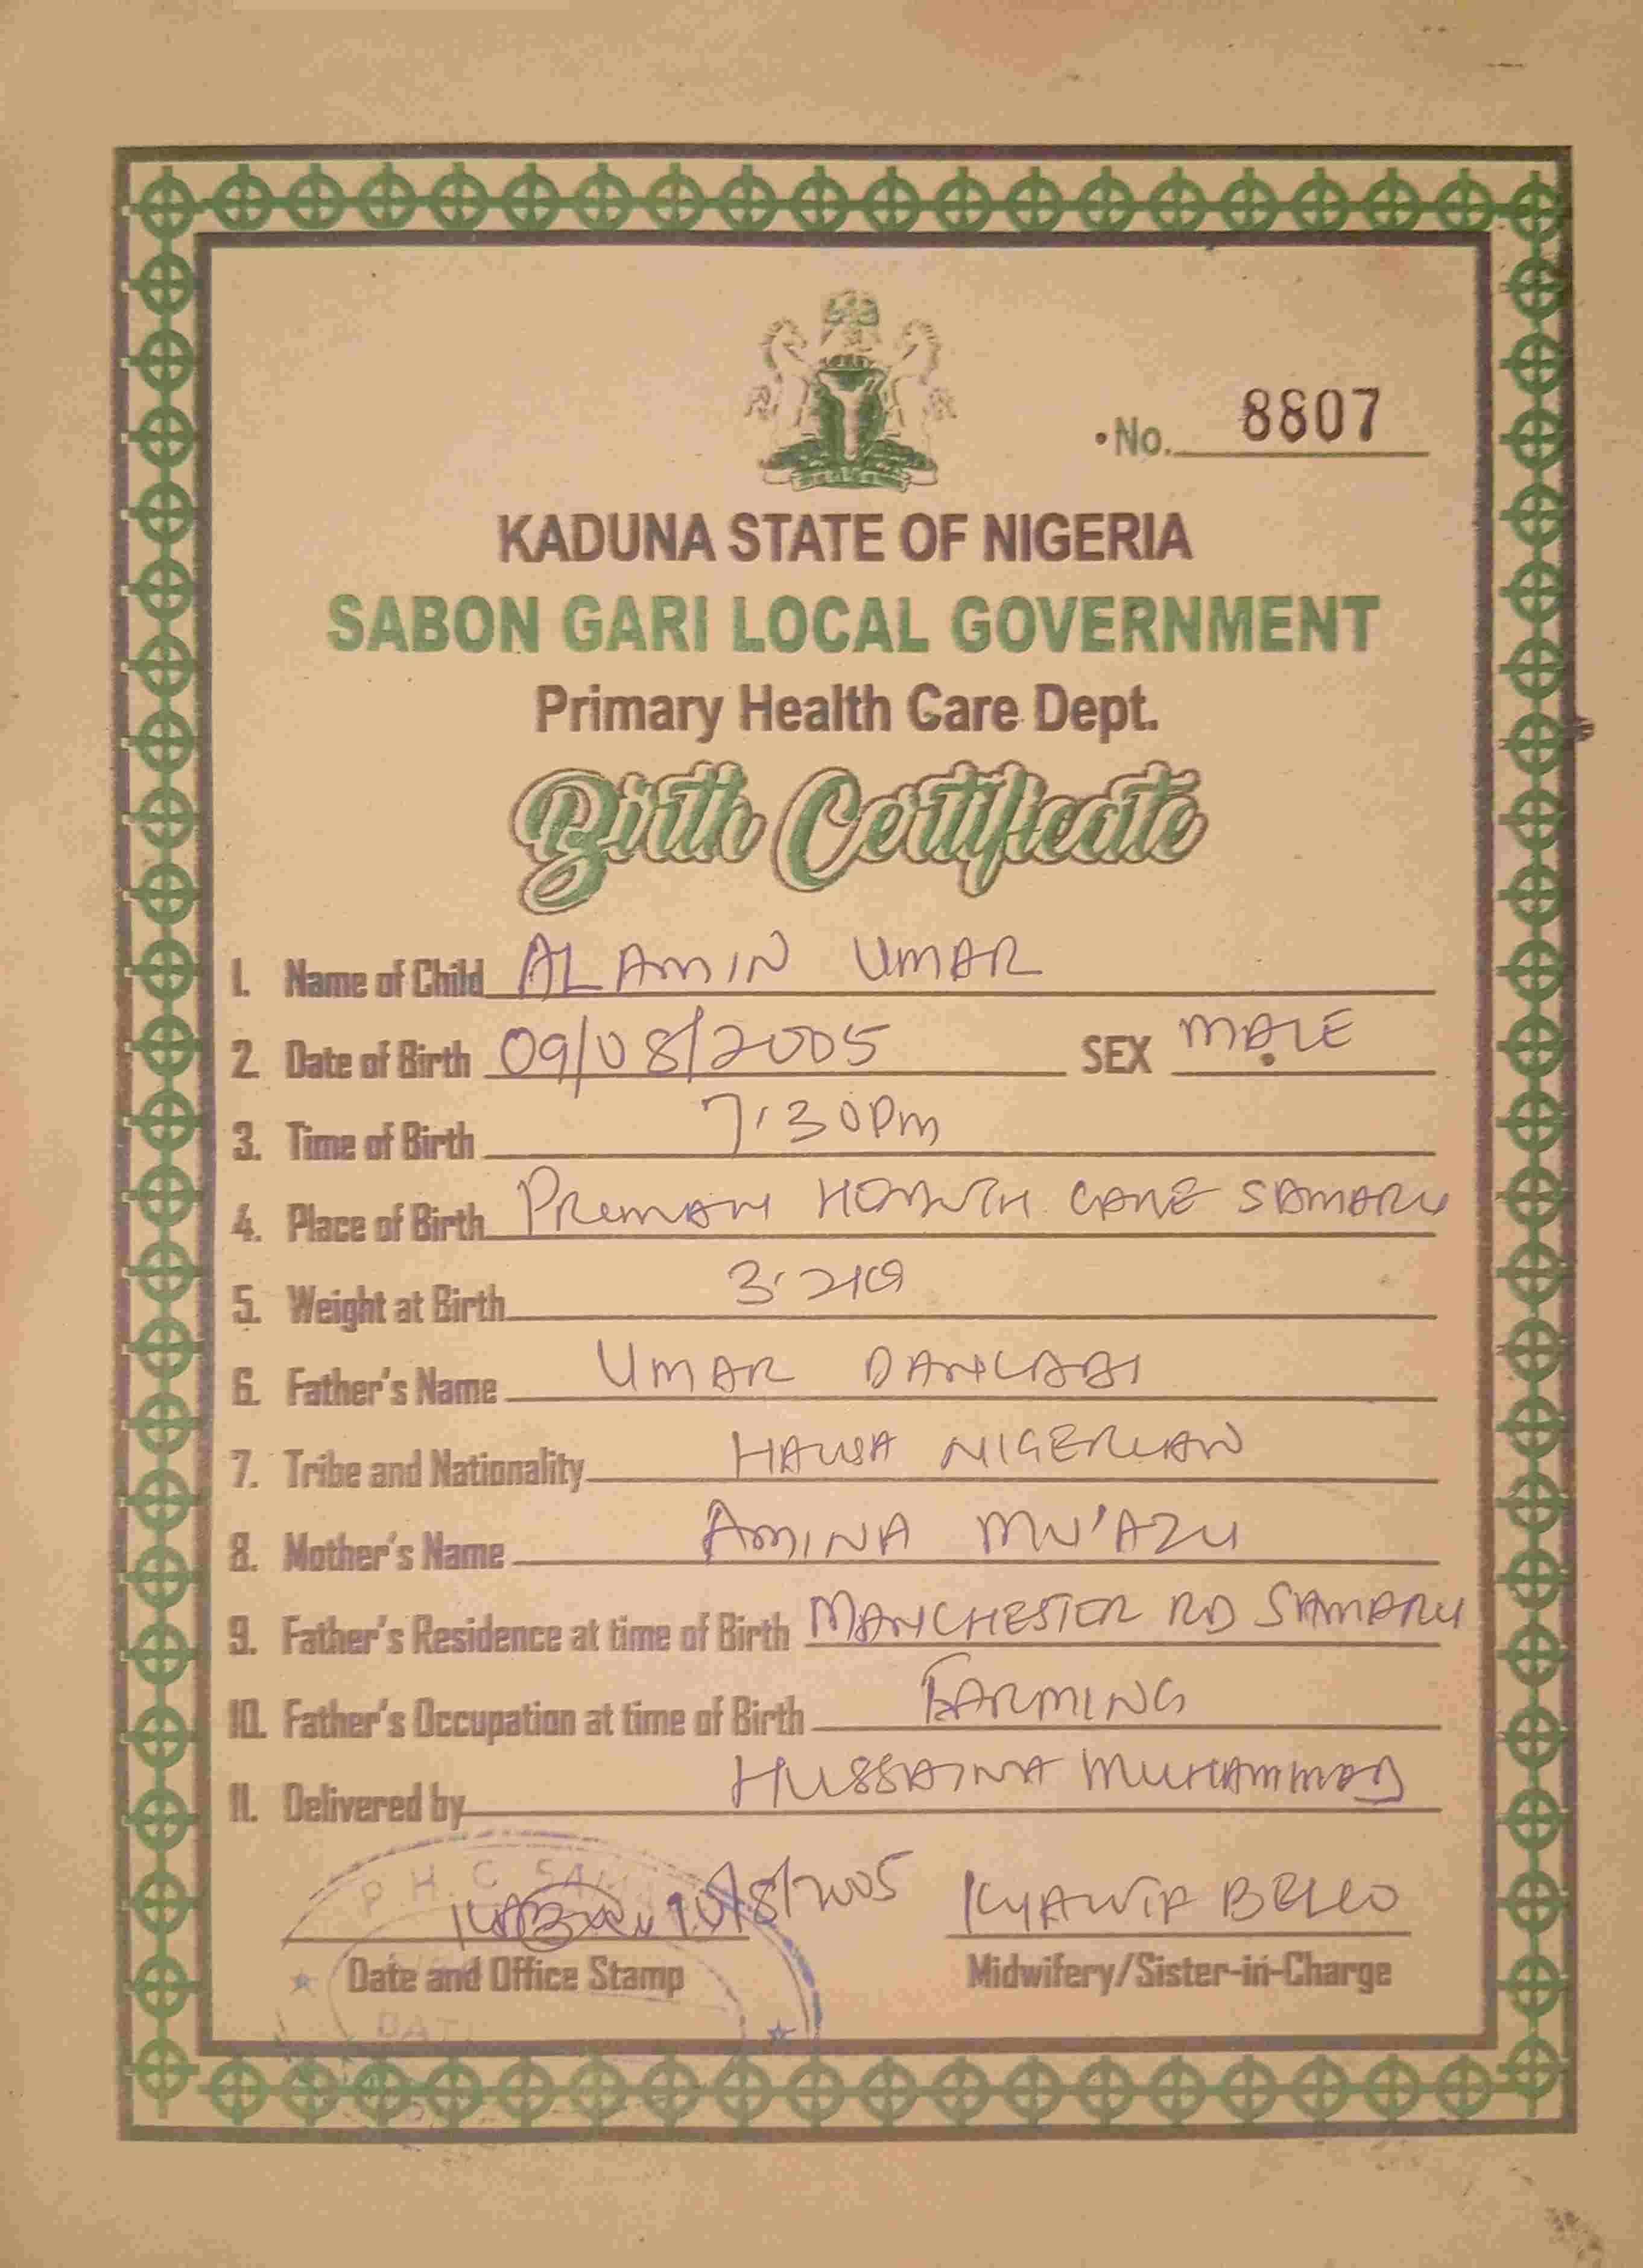 No. 8807
KADUNA STATE OF NIGERIA
SABON GARI LOCAL GOVERNMENT
Primary Health Care Dept.
Birth Certificate
1. Name of Child ALAMIN UMAR
2. Date of Birth 09/08/2005 SEX MALE
3. Time of Birth 7:30pm
4. Place of Birth PRIMARY HEALTH CARE SAMARU
5. Weight at Birth
6. Father's Name UMAR DANLADI
7. Tribe and Nationality HAUSA NIGERIAN
8. Mother's Name AMINA MU'AZU
9. Father's Residence at time of Birth MANCHESTER RD SAMARU
10. Father's Occupation at time of Birth FARMING
11. Delivered by HUSSAINA MUHAMMAD
P.H.C
10/8/2005 BELLO
Date and Office Stamp Midwifery/Sister-in-Charge